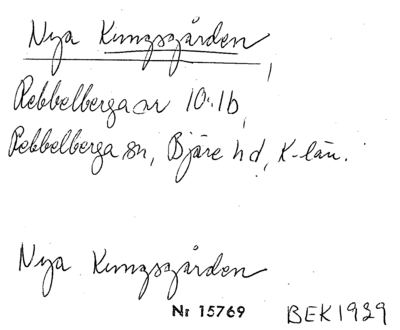 Nya Kungsgården,
Rebbelberga nr 10:1b,
Rebbelberga sn, Bjäre hd, K-län.
Nya Kungsgården
Nr 15769 BEK1929